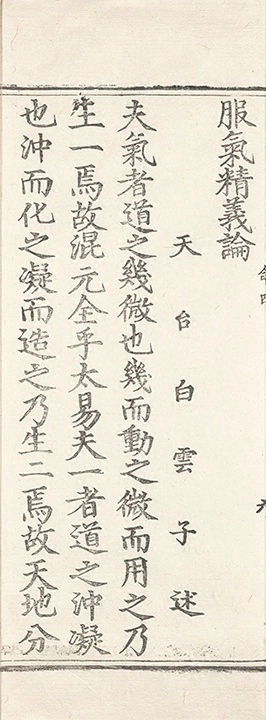 服氣精義論
天台白雲子述
夫氣者道之幾微也幾而動之微而用之乃
生一焉故混元全乎太易夫一者道之沖凝
也沖而化之凝而造之乃生二焉故天地分